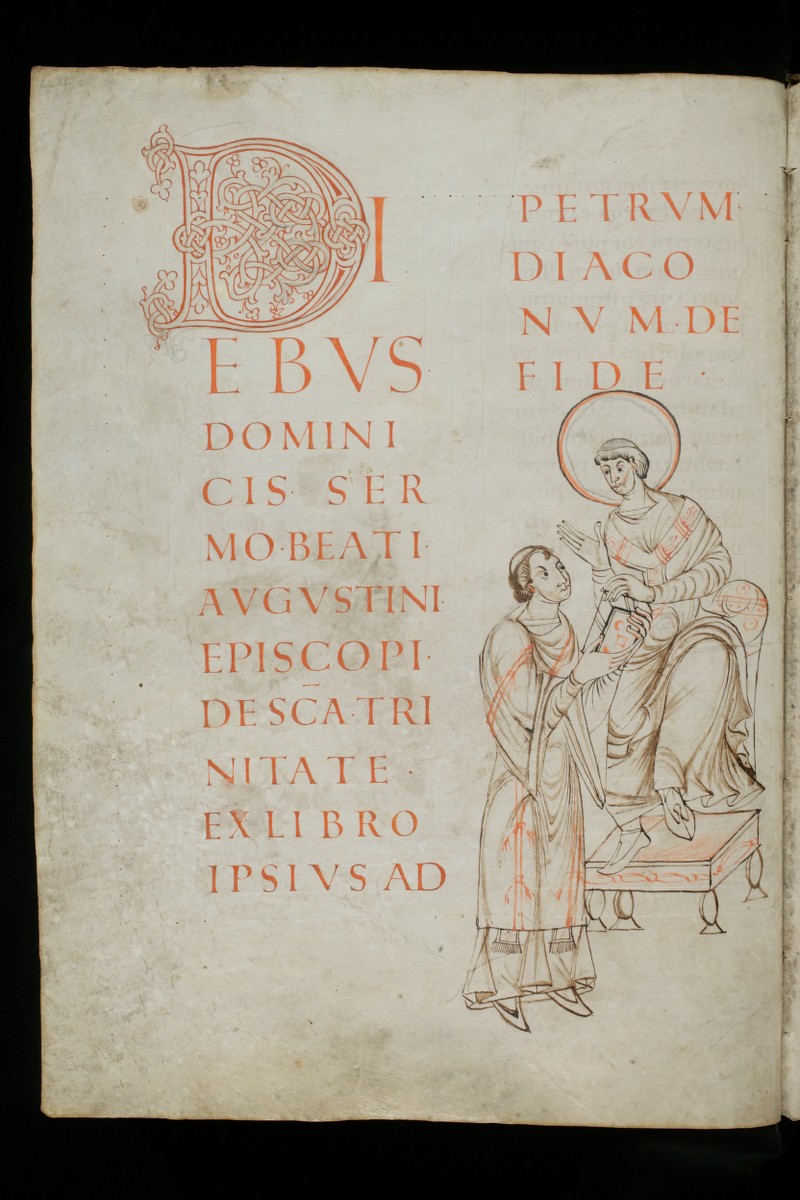 DI
EBVS
DOMINI
CIS· SER
MO·BEATI·
AVGVSTINI·
EPISCOPI·
DE SC̄A·TRI
NITATE·
EX LIBRO
IPSIVS AD
PETRVM·
DIACO
NVM·DE
FIDE·